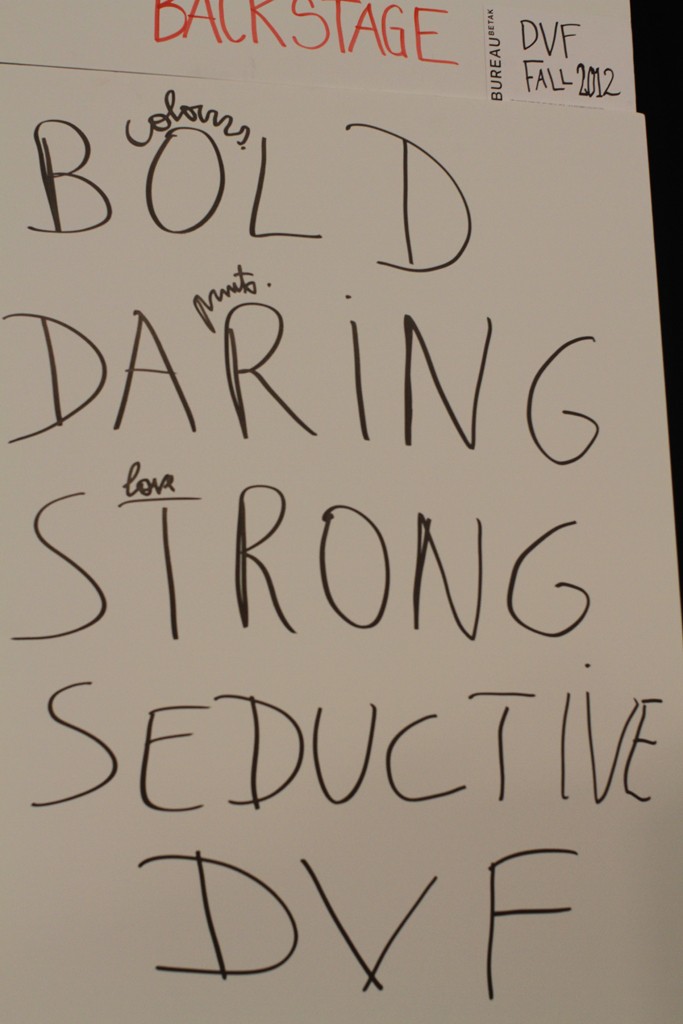 BACKSTAGE
BUREAU BETAK
DVF
FALL 2012
colours
BOLD
prints.
DARiNG
love
STRONG
SEDUCTiVE
DVF